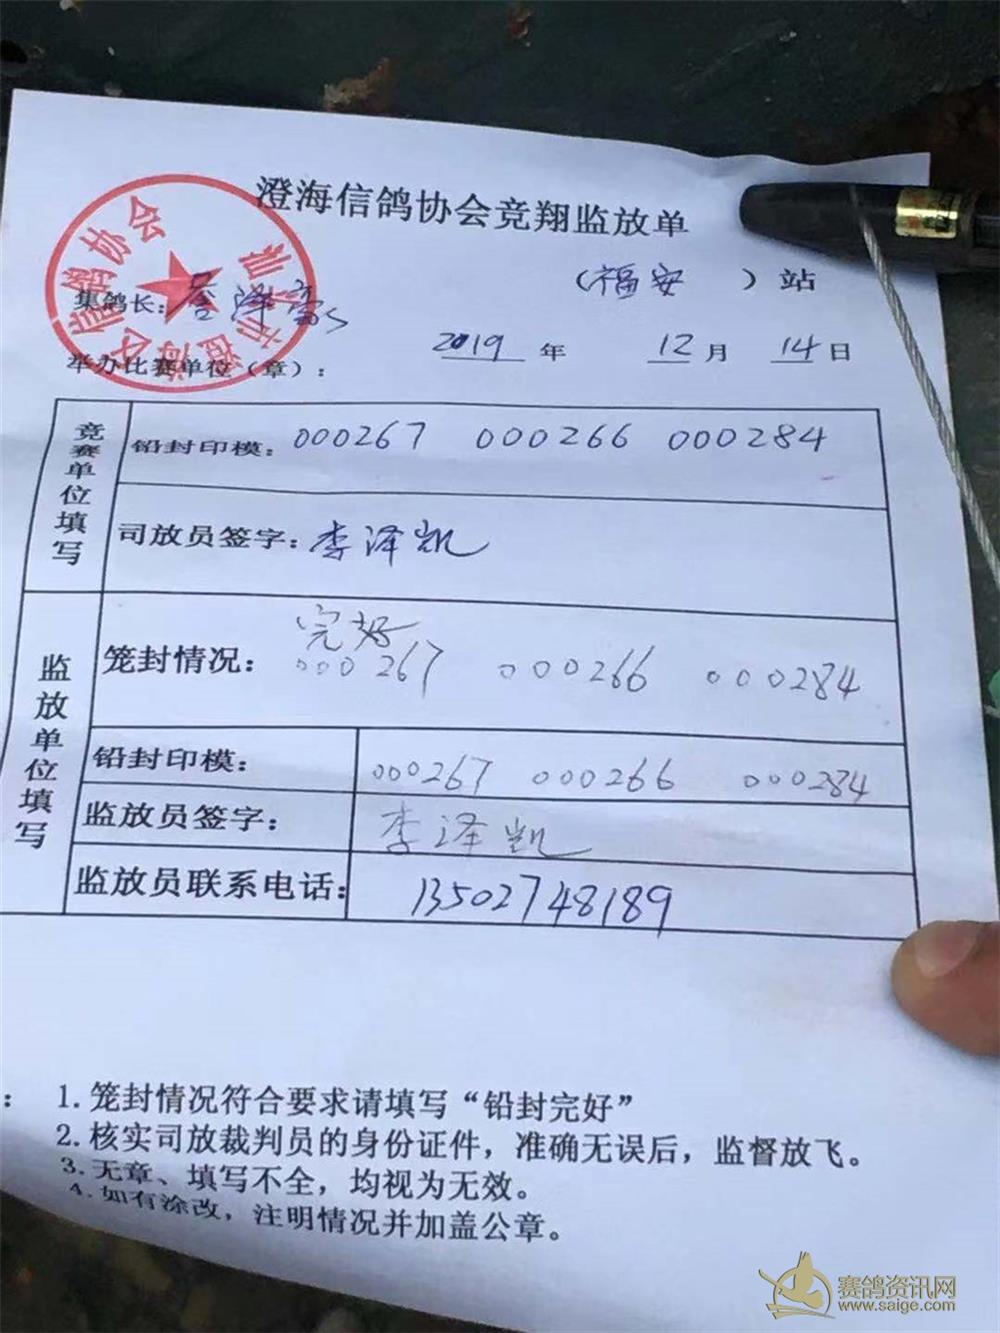 澄海信鸽协会竞翔监放单
(福安 )站
集鸽长:
2019 年 12 月 14 日
举办比赛单位(章):
汕头市澄海区信鸽协会
竞赛单位填写
铅封印模: 000267 000266 000284
司放员签字: 李泽凯
监放单位填写
笼封情况: 完好
000267 000266 000284
铅封印模: 000267 000266 000284
监放员签字: 李泽凯
监放员联系电话: 13502748189
: 1. 笼封情况符合要求请填写“铅封完好”
2. 核实司放裁判员的身份证件，准确无误后，监督放飞。
3. 无章、填写不全，均视为无效。
4. 如有涂改，注明情况并加盖公章。
赛鸽资讯网
www.saige.com